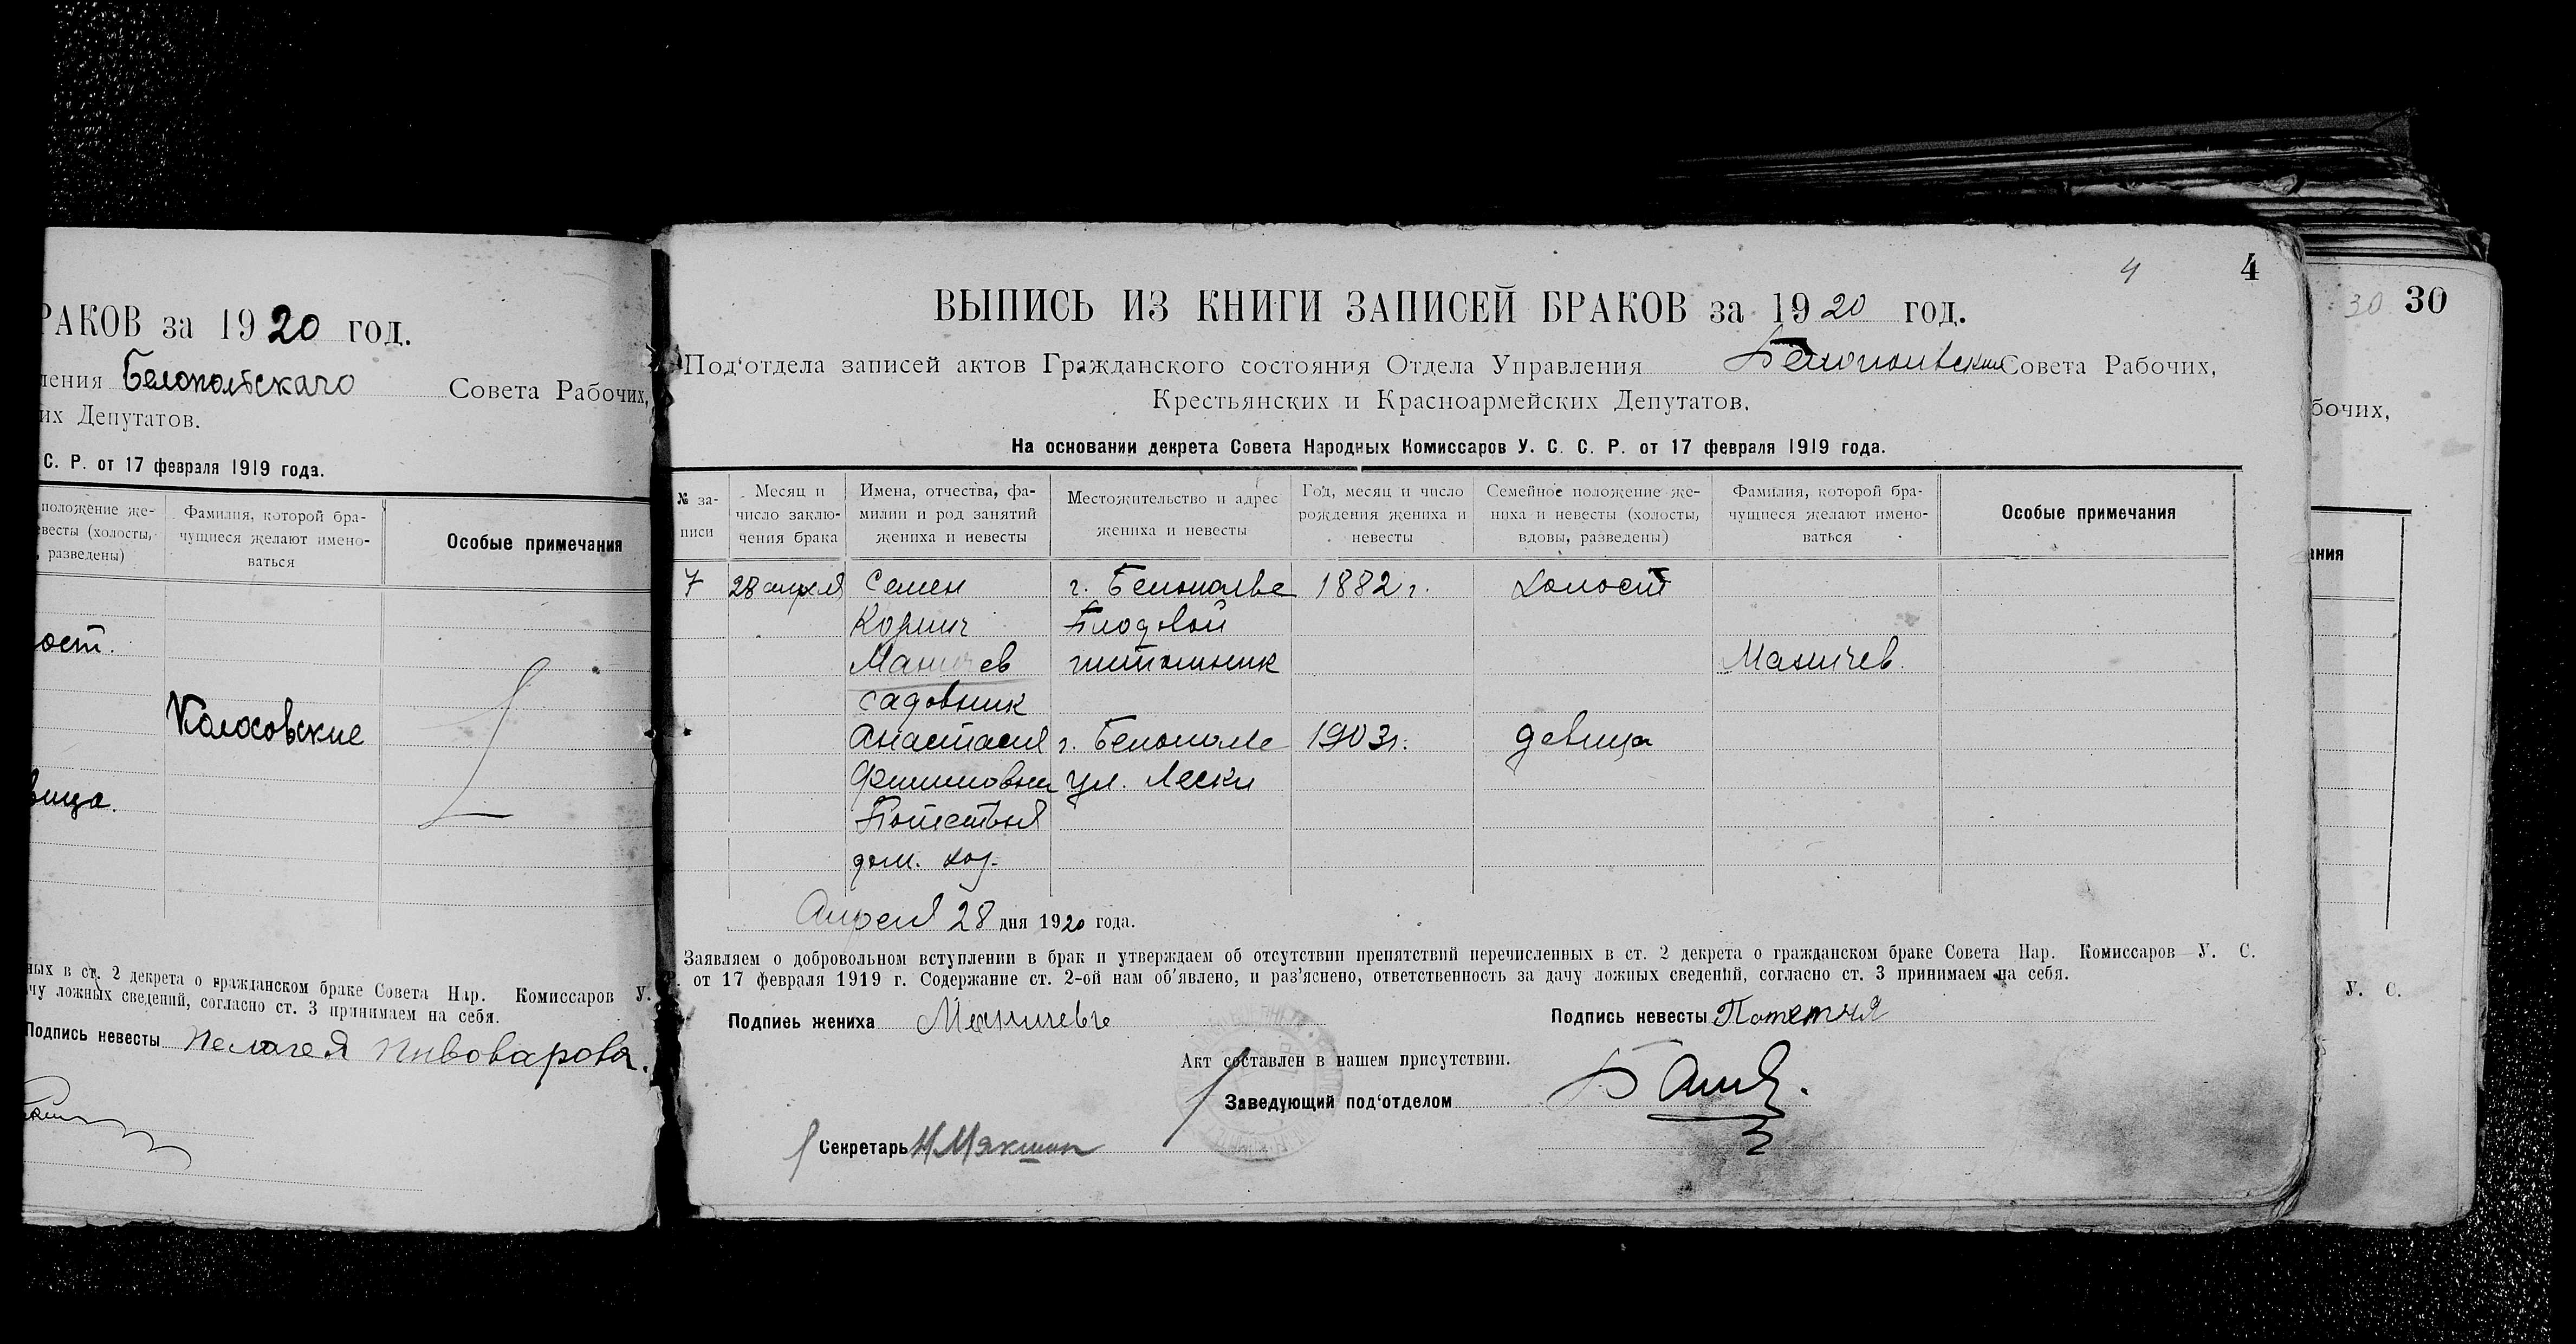 РАКОВ за 1920 год.
ления Белопольскаго Совета Рабочих,
их Депутатов.
С. Р. от 17 февраля 1919 года.
положение же-
евесты (холосты,
разведены)
Фамилия, которой бра-
чущиеся желают имено-
ваться
Особые примечания
ост.
Колосовские
вица.
ных в ст. 2 декрета о гражданском браке Совета Нар. Комиссаров У.
чу ложных сведений, согласно ст. 3 принимаем на себя.
Подпись невесты Пелагея Пивоварова.
4 4
ВЫПИСЬ ИЗ КНИГИ ЗАПИСЕЙ БРАКОВ за 1920 год.
Под'отдела записей актов Гражданского состояния Отдела Управления Белопольский Совета Рабочих,
Крестьянских и Красноармейских Депутатов.
На основании декрета Совета Народных Комиссаров У. С. С. Р. от 17 февраля 1919 года.
№ за-
писи
Месяц и
число заклю-
чения брака
Имена, отчества, фа-
милии и род занятий
жениха и невесты
Местожительство и адрес
жениха и невесты
Год, месяц и число
рождения жениха и
невесты
Семейное положение же-
ниха и невесты (холосты,
вдовы, разведены)
Фамилия, которой бра-
чущиеся желают имено-
ваться
Особые примечания
7 28 апреля Семен г. Белополье 1882 г. холост
Плодовой
Маничев питомник Маничев.
садовник
Анастасия г. Белополье 1903 г. девица
Филипповна ул. Лески
дом. хоз.
Апреля 28 дня 1920 года.
Заявляем о добровольном вступлении в брак и утверждаем об отсутствии препятствий перечисленных в ст. 2 декрета о гражданском браке Совета Нар. Комиссаров У. С.
от 17 февраля 1919 г. Содержание ст. 2-ой нам об'явлено, и раз'яснено, ответственность за дачу ложных сведений, согласно ст. 3 принимаем на себя.
Подпись жениха Маничевъ Подпись невесты Потетня
Акт составлен в нашем присутствии.
Заведующий под'отделом
Секретарь Н Мякшин
30 30
бочих,
ния
У. С.